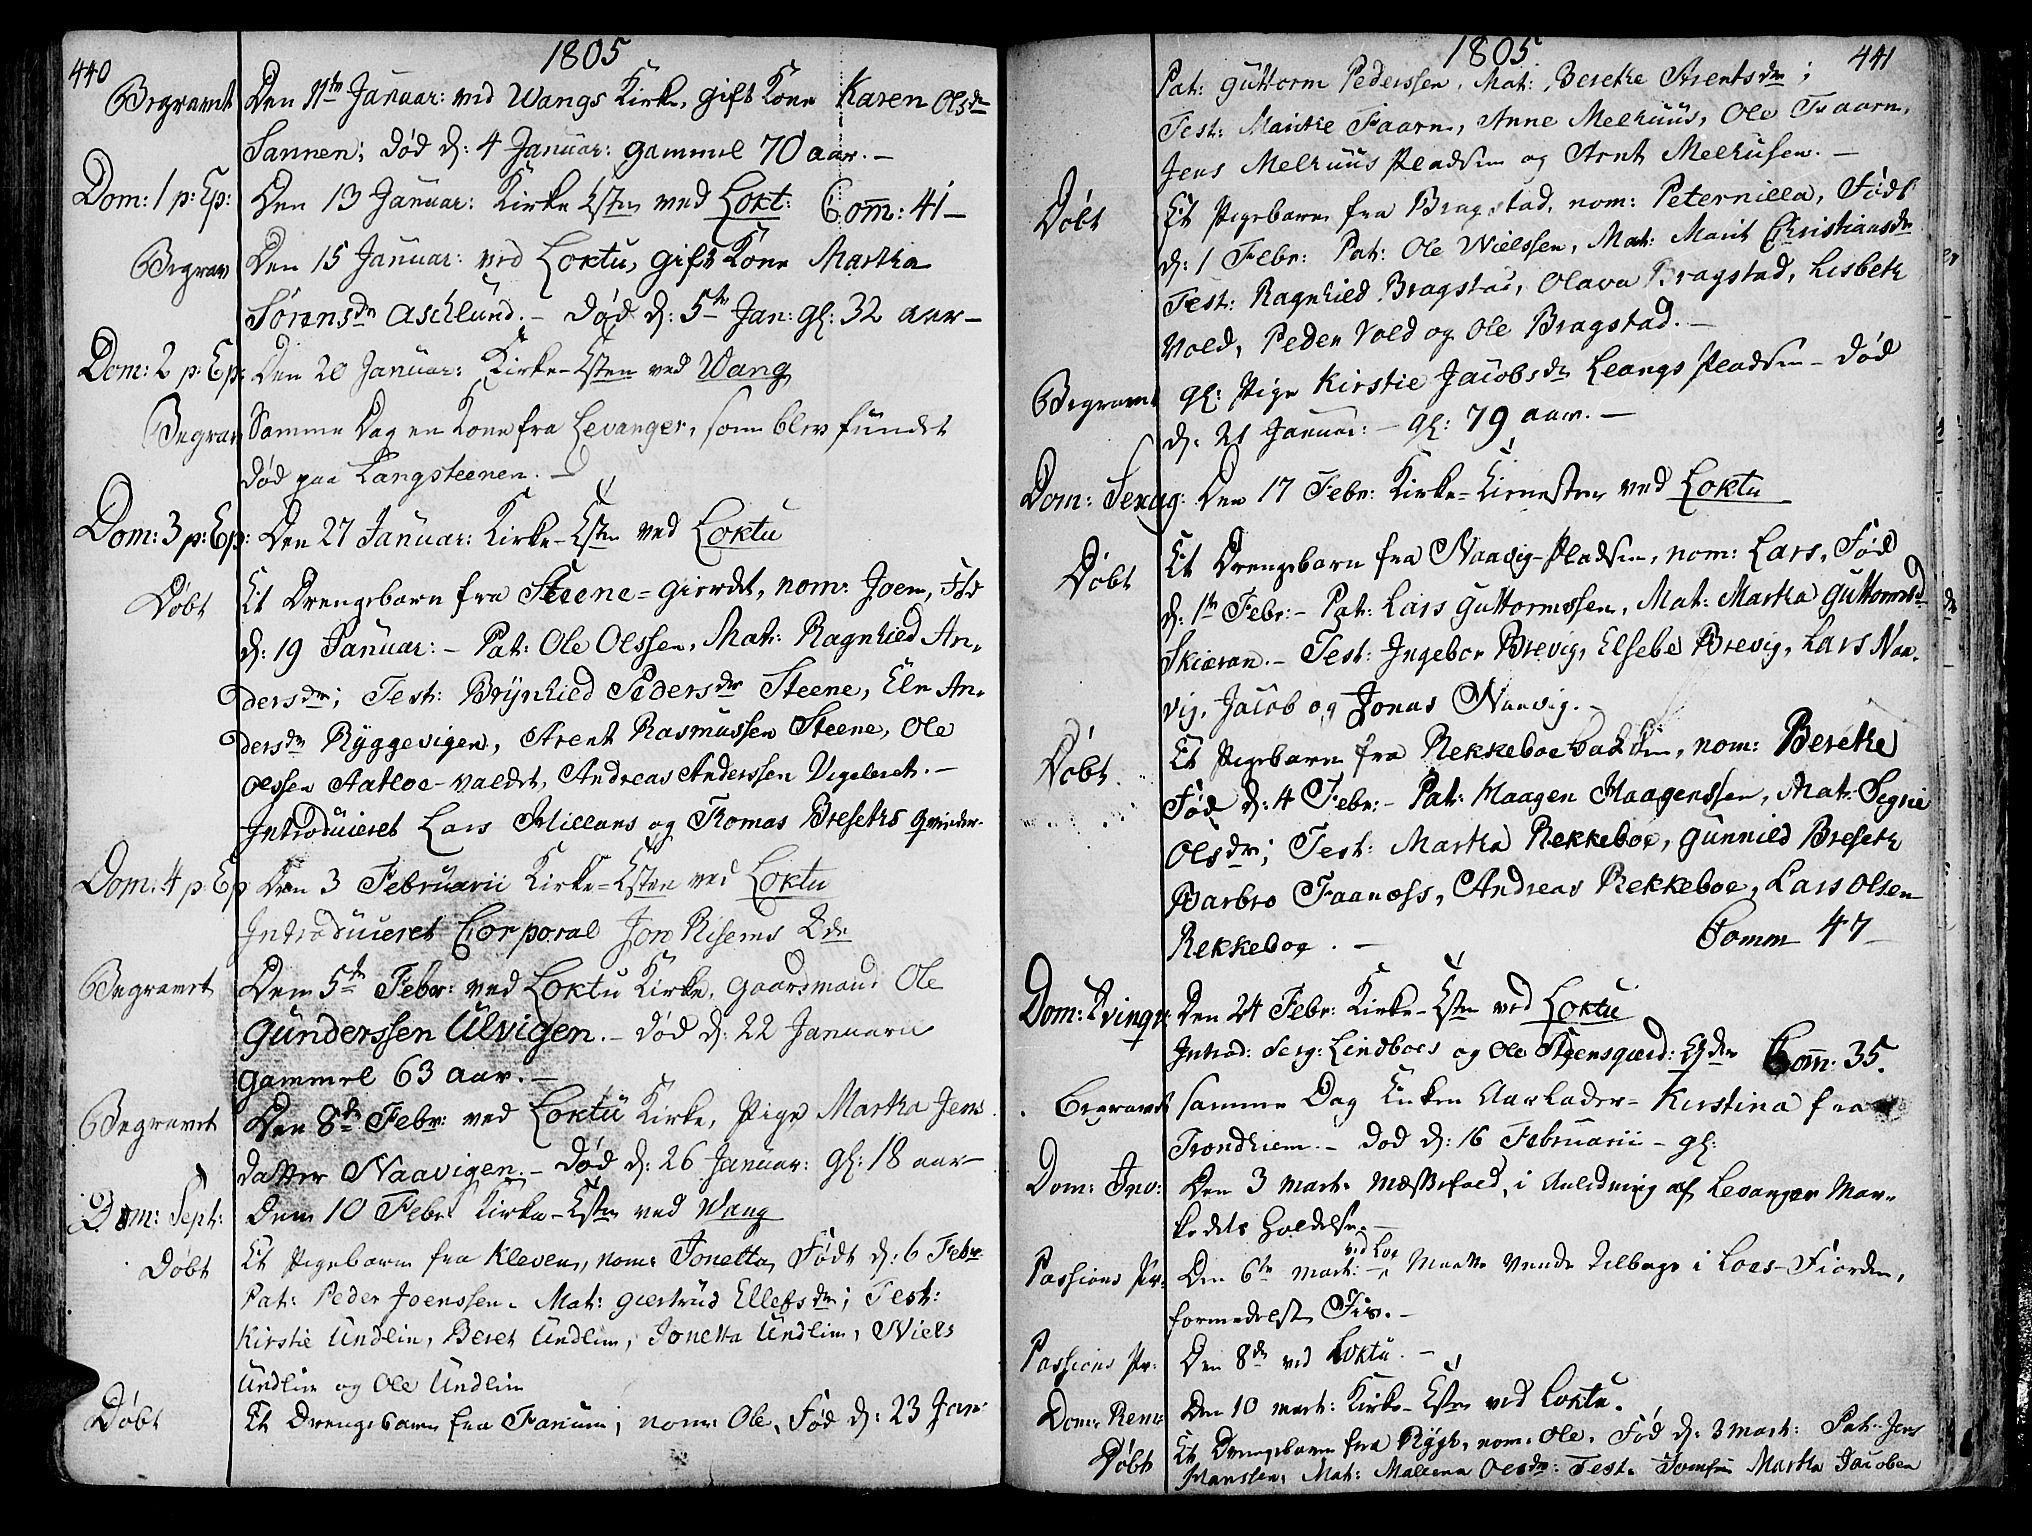 440
1805
Begravet Den 11te Januar: ved Wangs Kirke, gift Kone Karen Olsdr
Sannen, død d: 4 Januar: gammel 70 aar. –
Dom: 1 p: Ep: Den 13 Januar: Kirke-Esten ved Lokt: Com̄: 41 –
Begrav Den 15 Januar: ved Loktu, gift Kone Martha
Sørensdr Aschlund. – Død d: 5te Jan: gl: 32 aar –
Dom: 2 p: Ep: Den 20 Januar: Kirke-Esten ved Wang
Begrav Samme Dag en Kone fra Levanger, som blev fundet
død paa Langsteenen. –
Dom: 3 p: Ep: Den 27 Januar: Kirke-Esten ved Loktu
Døbt Et Drengebarn fra Steene-gierdet, nom: Joen, Fød
d: 19 Januar: – Pat: Ole Olssen, Mat: Ragnhied An-
dersdr; Test: Brÿnhied Pedersdr Steene, Eln An-
dersdr Rÿggevigen, Arent Rasmussen Steene, Ole
Olssen Aatloe-valdet, Andreas Anderssen Vigeleret. –
Introduceret Lars Millans og Thomas Breseths Qvinder.
Dom: 4 p: Ep Den 3 Februarii Kirke-Esten ved Loktu
Introduceret Corporal Jon Risems
Begravet Den 5te Febr: ved Loktu Kirke, Gaardmand Ole
Gunderssen Ulvigen. – død d: 22 Januarii
gammel 63 aar. –
Begravet Den 8de Febr: ved Loktu Kirke, Pige Martha Jens
datter Naavigen. – Død d: 26 Januar: gl: 18 aar –
Dom: Sept: Den 10 Febr: Kirke-Esten ved Wang
Døbt Et Pigebarn fra Kleven, nom: Jonetta, Født d: 6 Febr
Pat: Peder Joenssen. Mat: Giertrud Ellefsdr; Test:
Kirstie Undlin, Beret Undlim, Jonetta Undlim, Niels
Undlim og Ole Undlim
Døbt Et Drengebarn fra Fanum, nom: Ole, Fød d: 23 Jan:
1805
441
Pat: Guttorm Pederssen, Mat: Berethe Arentsdr;
Test: Marithe Faarn, Anne Melhuus, Ole Faarn,
Jens Melhuus Pladsen og Arnt Melhusen. –
Døbt Et Pigebarn fra Bragstad, nom: Peternilla, Født
d: 1 Febr: Pat: Ole Nielssen, Mat: Marit Christiansdr
Test: Ragnhied Bragstad, Olava Bragstad, Lisbeth
Vold, Peder Vold og Ole Bragstad. –
Begravet gl: Pige Kirstie Jacobsdr Leangs Pladsen – død
d: 21 Januar: – gl: 79 aar. –
Dom: Sexag: Den 17 Febr: Kirke- ved Loktu
Døbt Et Drengebarn fra Naavig-Pladsen, nom: Lars, Fød
d: 1te Febr: – Pat: Lars Guttormssen, Mat: Martha Guttormsdr
Skieran. – Test: Ingebor Brevig, Elsebe Brevig, Lars Naa-
vig, Jacob og Jonas Naavig. –
Døbt. Et Pigebarn fra Rekkeboe, nom: Berethe
Fød d: 4 Febr: – Pat: Haagen Haagenssen, Mat: Signe
Olsdr; Test: Martha Rekkeboe, Gunnild Breseth
Barbro Faanæss, Andreas Rekkeboe, Lars Olsen
Rekkeboe. – Comm 47 –
Dom: Qvinqv: Den 24 Febr: Kirke-Esten ved Loktu
Introd: Serg: Lindboes og Ole Steensgierd: Com̄: 35.
Begravet samme Dag Enken Aarlader- Kirstina fra
Trondhiem. – Død d: 16 Februarii – gl:
Dom: Invo: Den 3 mart: Mæssefald, i Anledning af Levanger Mar-
kedets Holdelse. –
Passions Pr. Den 6te mart: ved Lox Maatte vende tilbage i Loxs-Fiorden,
formedelst Iis. –
Passions Pr: Den 8de ved Loktu. –
Dom: Rem: Den 10 mart: Kirke-Esten ved Loktu.
Døbt Et Drengebarn fra Rÿgh, nom: Ole. Fød d: 3 mart: Pat: Jens
Hanssen, Mat: Malena Olesdr: Test: Martha Jacobsn